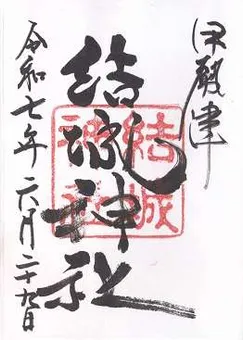 伊勢津
結城神社
結城
神社
令和七年六月二十九日